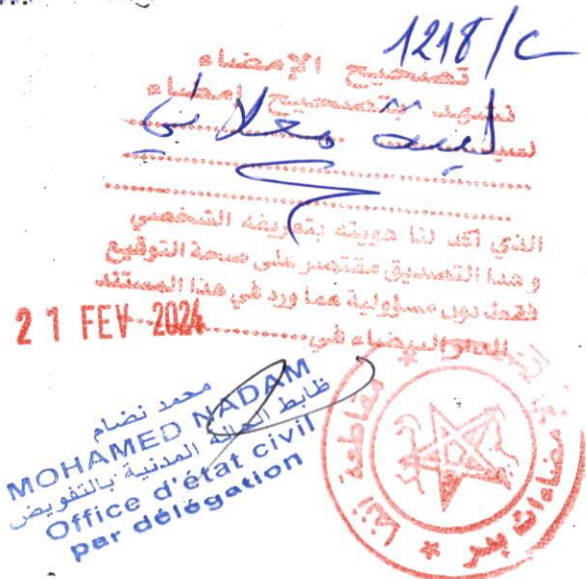 1218/C
تصحيح الإمضاء
نشهد بتصحيح إمضاء
لسيد
الذي أكد لنا هويته بتعريفه الشخصي
و هذا التصديق مقتصر على صحة التوقيع
فقط دون مسؤولية عما ورد في هذا المستند
الدار البيضاء في
21 FEV 2024
محمد نضام
MOHAMED NADAM
ظابط الحالة المدنية بالتفويض
Office d'état civil
par délégation